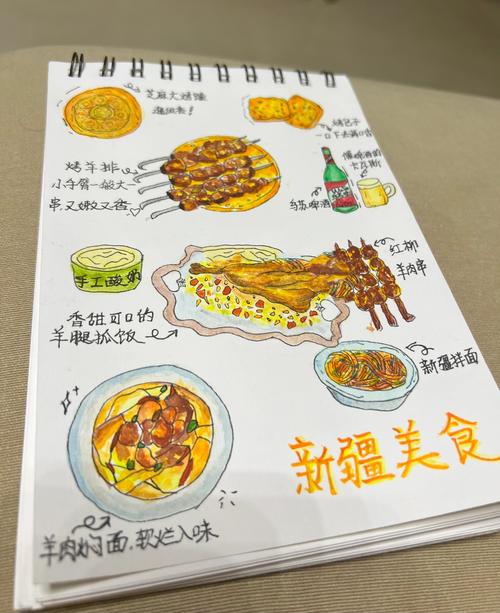 芝麻大烤馕
逛组卷!
烤包子
一口下去满口香
烤羊排
小手臂一般大一
串又嫩又香
像啤酒的
卡瓦斯
乌苏啤酒
手工酸奶
红柳
羊肉串
香甜可口的
羊腿抓饭
新疆拌面
新疆美食
羊肉焖面,软烂入味